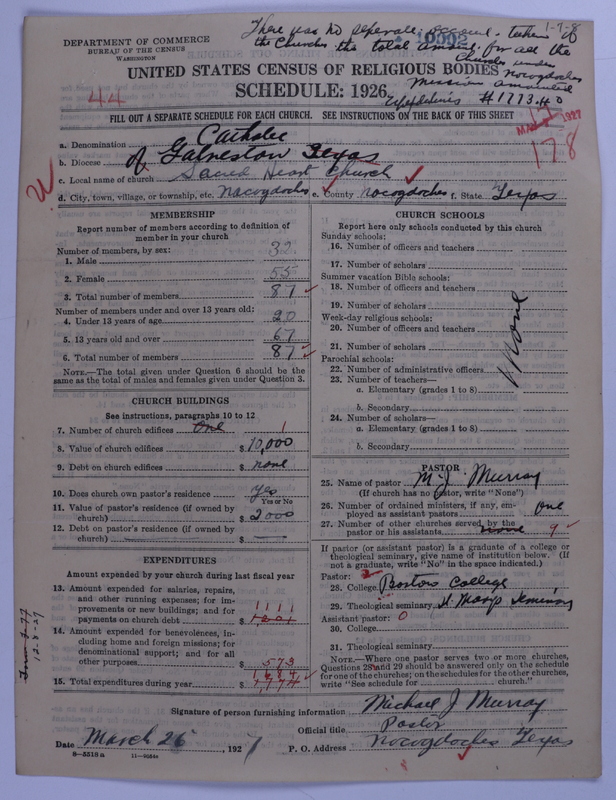 There was no seperate account taken of
the Churches the total amount for all the
Churches under
Nacogdoches
Mission amounted
#1773.40
1-7-8
DEPARTMENT OF COMMERCE
BUREAU OF THE CENSUS
WASHINGTON
UNITED STATES CENSUS OF RELIGIOUS BODIES
SCHEDULE: 1926
44
FILL OUT A SEPARATE SCHEDULE FOR EACH CHURCH. SEE INSTRUCTIONS ON THE BACK OF THIS SHEET
1927
178
a. Denomination Catholic
b. Diocese of Galveston Texas
c. Local name of church Sacred Heart Church
d. City, town, village, or township, etc. Nacogdoches e. County Nacogdoches f. State Texas
MEMBERSHIP
Report number of members according to definition of
member in your church
Number of members, by sex:
1. Male 32
2. Female 55
3. Total number of members 87
Number of members under and over 13 years old:
4. Under 13 years of age 20
5. 13 years old and over 67
6. Total number of members 87
NOTE.—The total given under Question 6 should be the
same as the total of males and females given under Question 3.
CHURCH BUILDINGS
See instructions, paragraphs 10 to 12
7. Number of church edifices one 1
8. Value of church edifices $ 10,000
9. Debt on church edifices $ none
10. Does church own pastor's residence yes
Yes or No
11. Value of pastor's residence (if owned by
church) $ 2000
12. Debt on pastor's residence (if owned by
church) $ —
EXPENDITURES
Amount expended by your church during last fiscal year
13. Amount expended for salaries, repairs,
and other running expenses; for im-
provements or new buildings; and for
payments on church debt $ 1201
1111
14. Amount expended for benevolences, in-
cluding home and foreign missions; for
denominational support; and for all
other purposes $ 573
1684
15. Total expenditures during year $ 1,774
CHURCH SCHOOLS
Report here only schools conducted by this church
Sunday schools:
16. Number of officers and teachers
17. Number of scholars
Summer vacation Bible schools:
18. Number of officers and teachers
19. Number of scholars
Week-day religious schools:
20. Number of officers and teachers
21. Number of scholars
Parochial schools:
22. Number of administrative officers
23. Number of teachers—
a. Elementary (grades 1 to 8)
b. Secondary
24. Number of scholars—
a. Elementary (grades 1 to 8)
b. Secondary
None
PASTOR
25. Name of pastor M. J. Murray
(If church has no pastor, write "None")
26. Number of ordained ministers, if any, em-
ployed as assistant pastors one
27. Number of other churches served by the
pastor or his assistants none 9
If pastor (or assistant pastor) is a graduate of a college or
theological seminary, give name of institution below. (If
not a graduate, write "No" in the space indicated.)
Pastor: 2
28. College Boston College
29. Theological seminary St Marys Seminary
Assistant pastor: 0
30. College
31. Theological seminary
NOTE.—Where one pastor serves two or more churches,
Questions 28 and 29 should be answered only on the schedule
for one of the churches; on the schedules for the other churches,
write "See schedule for ______ church."
Signature of person furnishing information Michael J Murray
Official title Pastor
Date March 26, 1927 P. O. Address Nacogdoches Texas
8—5518 a 11—9034a
12-8-27